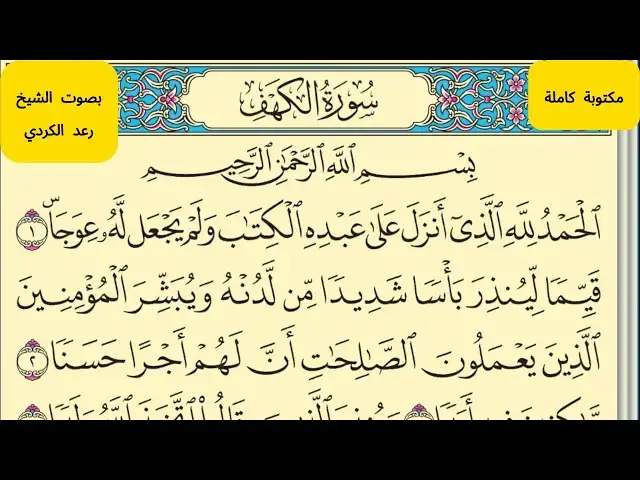 مكتوبة كاملة
بصوت الشيخ
رعد الكردي
سُورَةُ الْكَهْفِ
بِسْمِ اللَّهِ الرَّحْمَٰنِ الرَّحِيمِ
الْحَمْدُ لِلَّهِ الَّذِىٓ أَنزَلَ عَلَىٰ عَبْدِهِ الْكِتَٰبَ وَلَمْ يَجْعَل لَّهُۥ عِوَجَاۜ ١
قَيِّمًا لِّيُنذِرَ بَأْسًا شَدِيدًا مِّن لَّدُنْهُ وَيُبَشِّرَ الْمُؤْمِنِينَ
الَّذِينَ يَعْمَلُونَ الصَّٰلِحَٰتِ أَنَّ لَهُمْ أَجْرًا حَسَنًا ٢